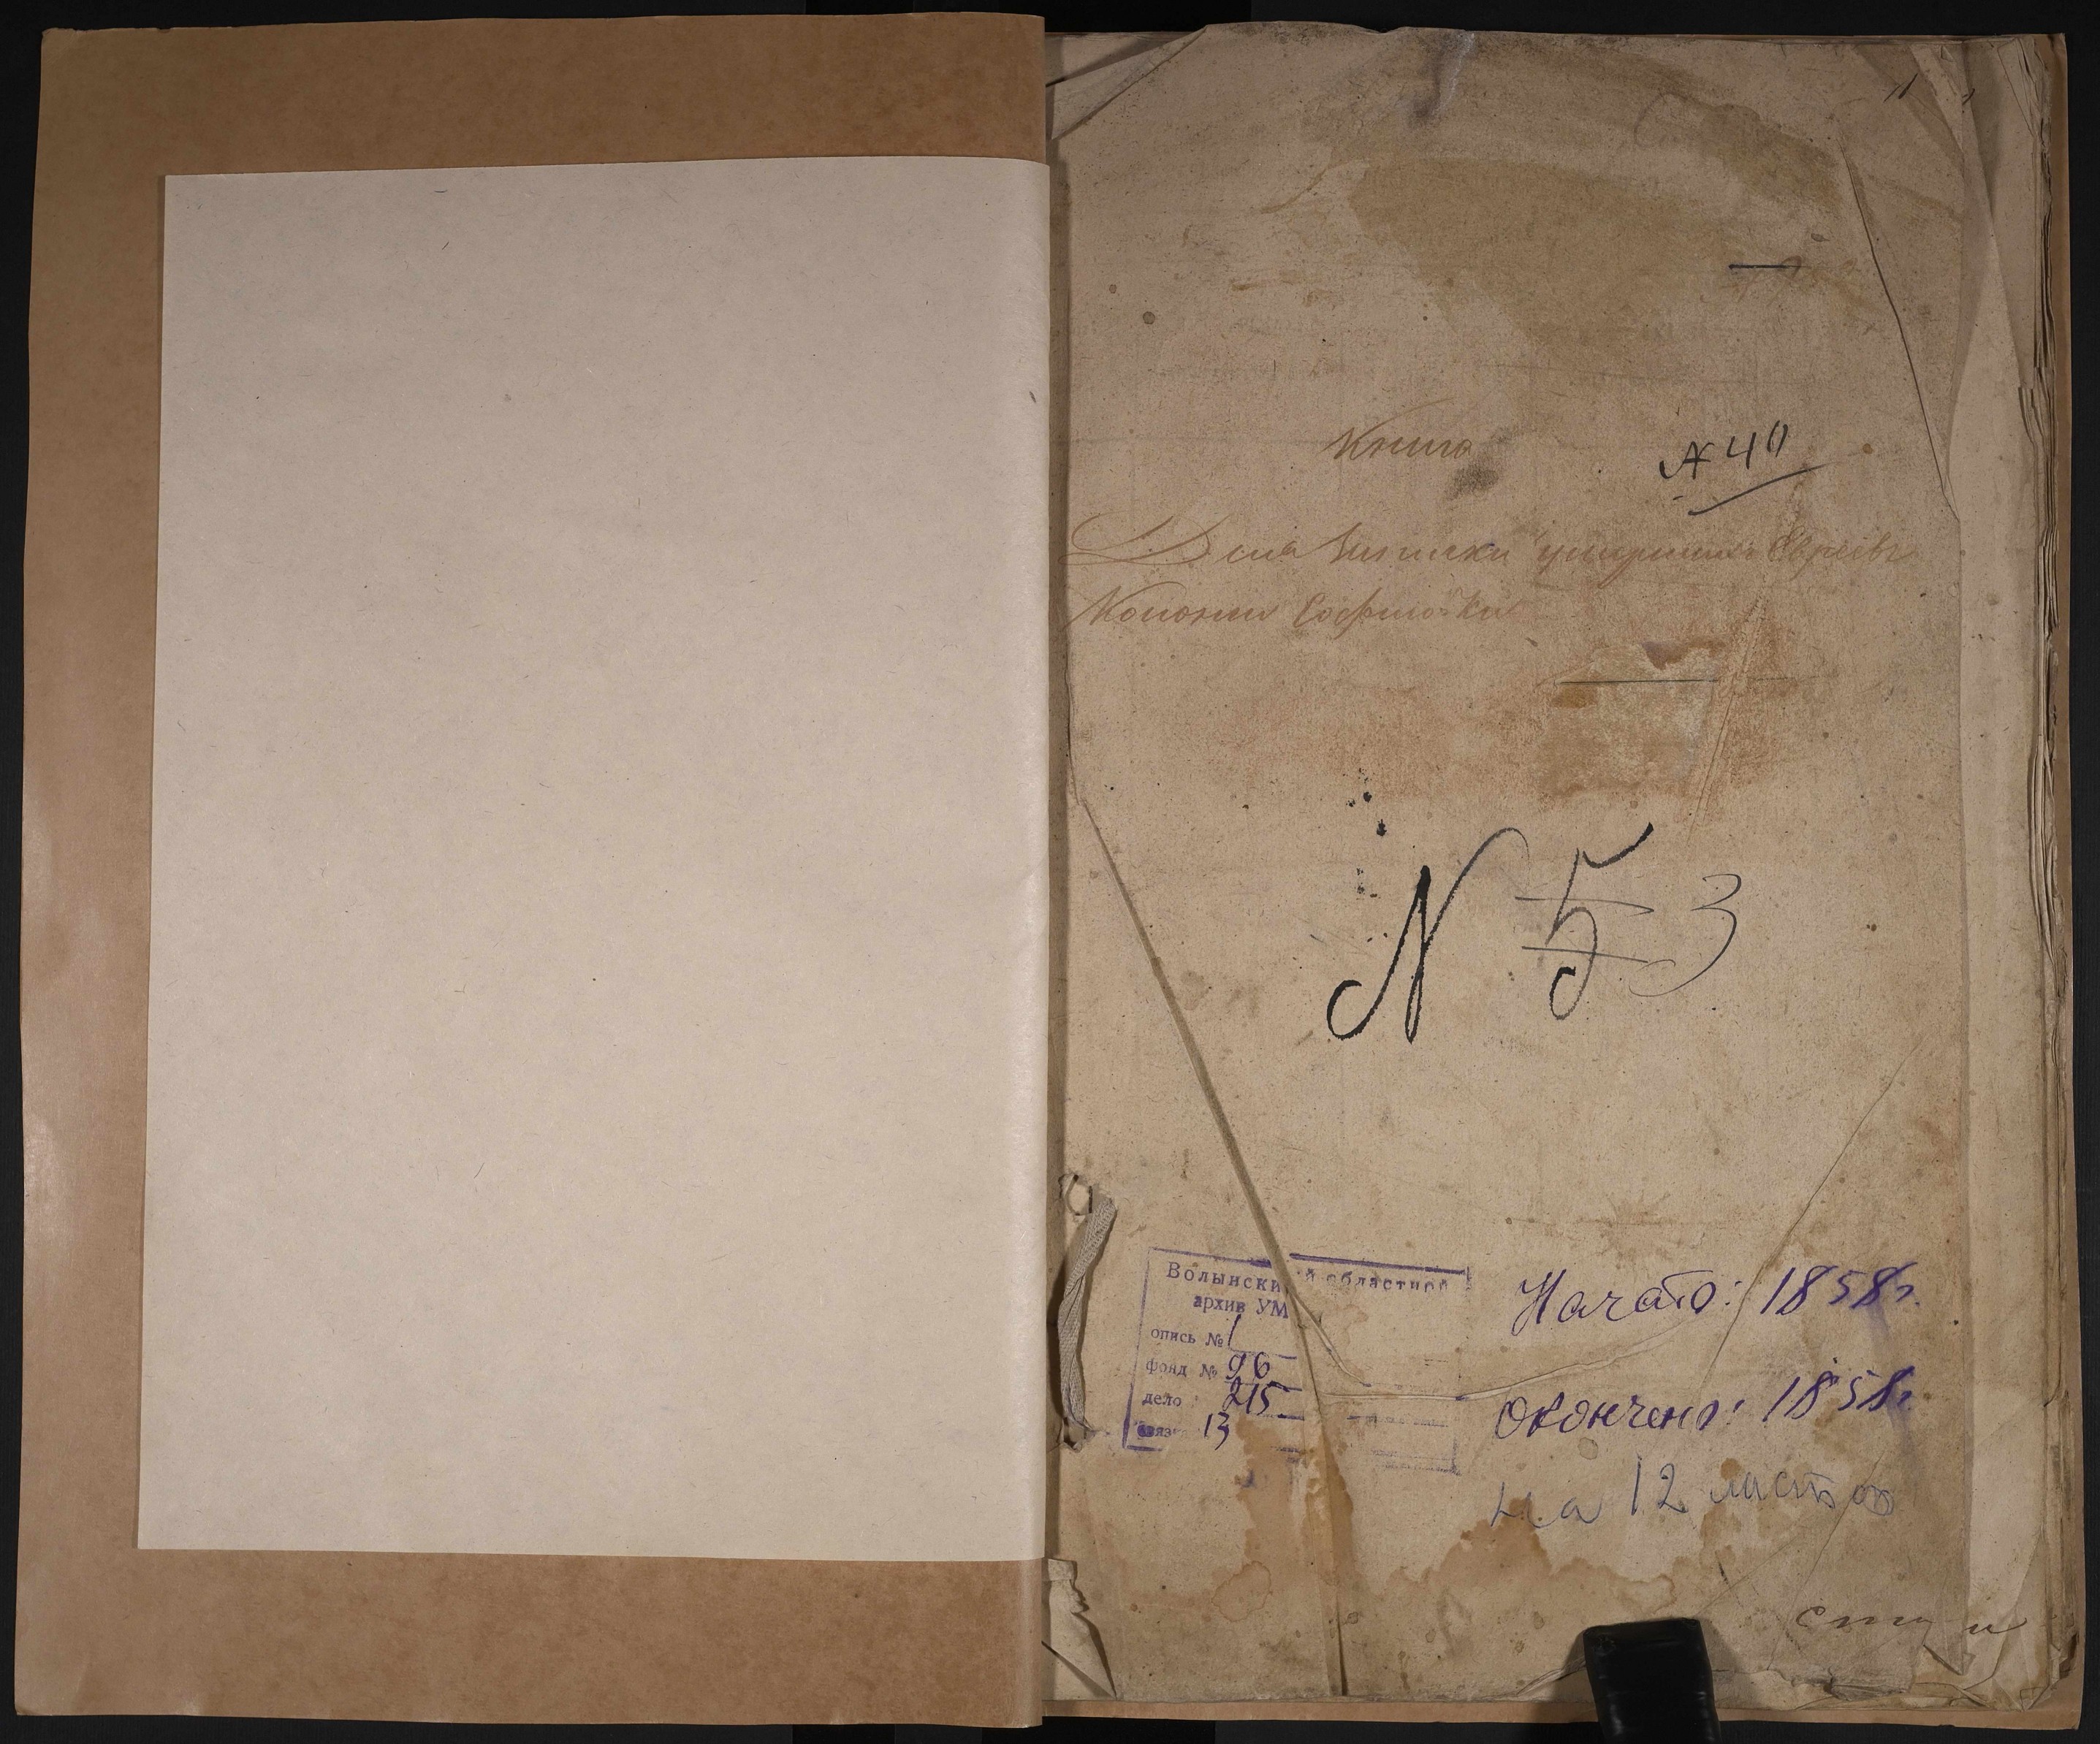 Книга
№ 40
Для записки умершихъ Евреевъ
Колонии Софиовки
N 5 3
Волынский областной
архив УМ
опись № 1
фонд № 96
дело 215
связ 13
Начато: 1858г.
Окончено: 1858г.
на 12 листов